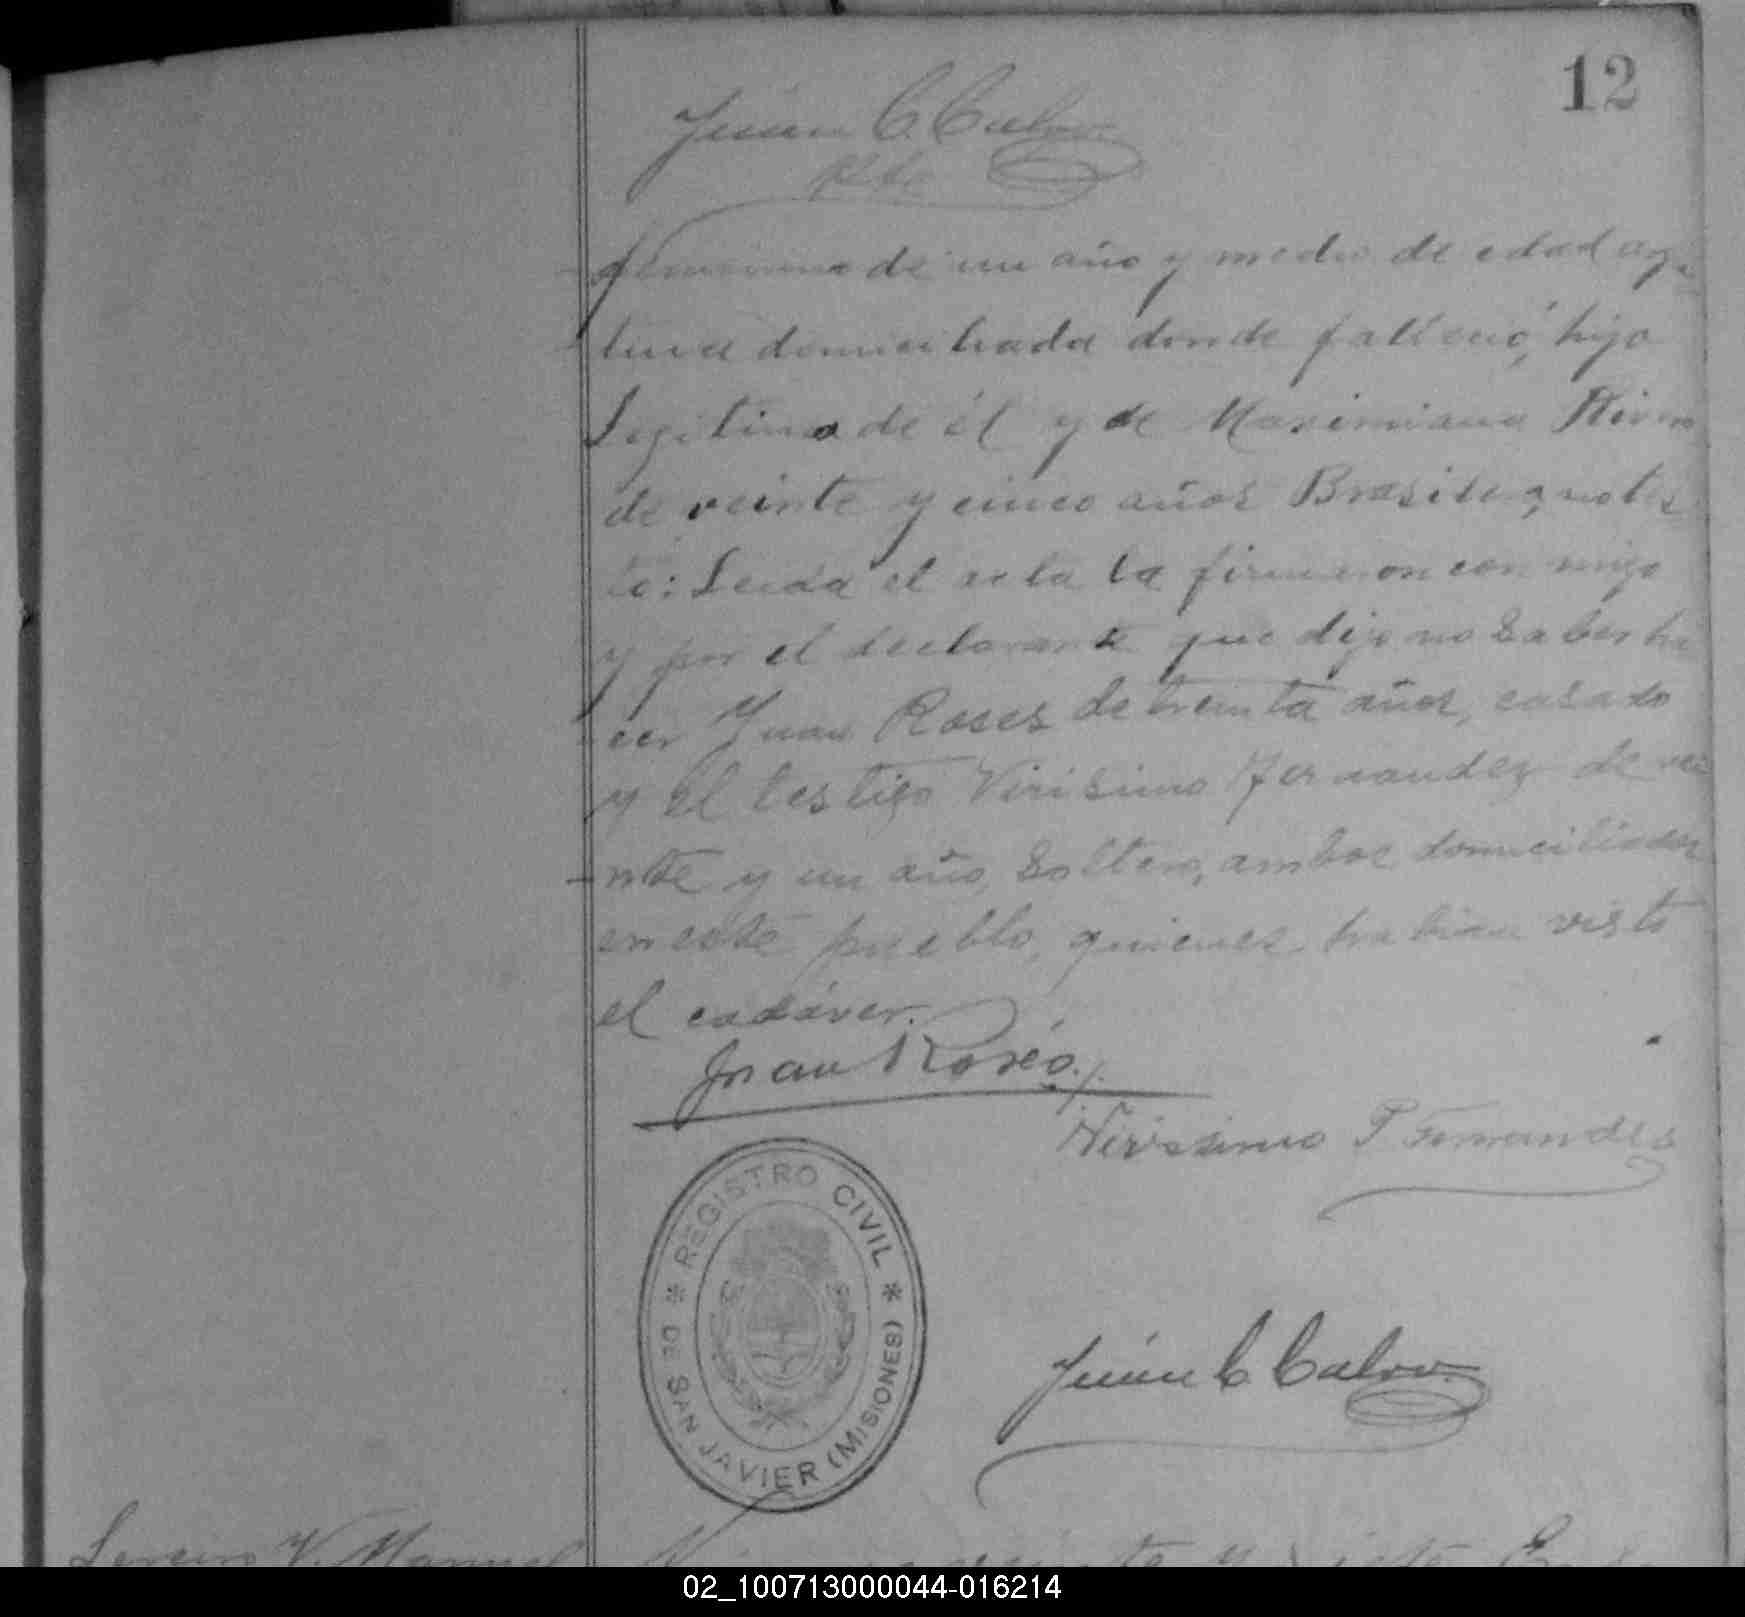 12
Juan C Calvo
femenino de un año y medio de edad arge
tina domiciliada donde falleció, hija
Legitima de él y de Maximiana
de veinte y cinco años Brasilera,
Leida el acta la firmaron con migo
y por el declarante que dijo no saber ha
cer Juan Roses de treinta años, casado
y el testigo Virisimo Fernandez de vei
nte y un año, soltero, ambos domiciliados
en este pueblo, quienes habian visto
el cadáver.
Juan Rosés
Virissimo P Fernandes
REGISTRO CIVIL
* DE SAN JAVIER (MISIONES) *
Juan C Calvo
V. Manuel
veinte y siete
02_100713000044-016214